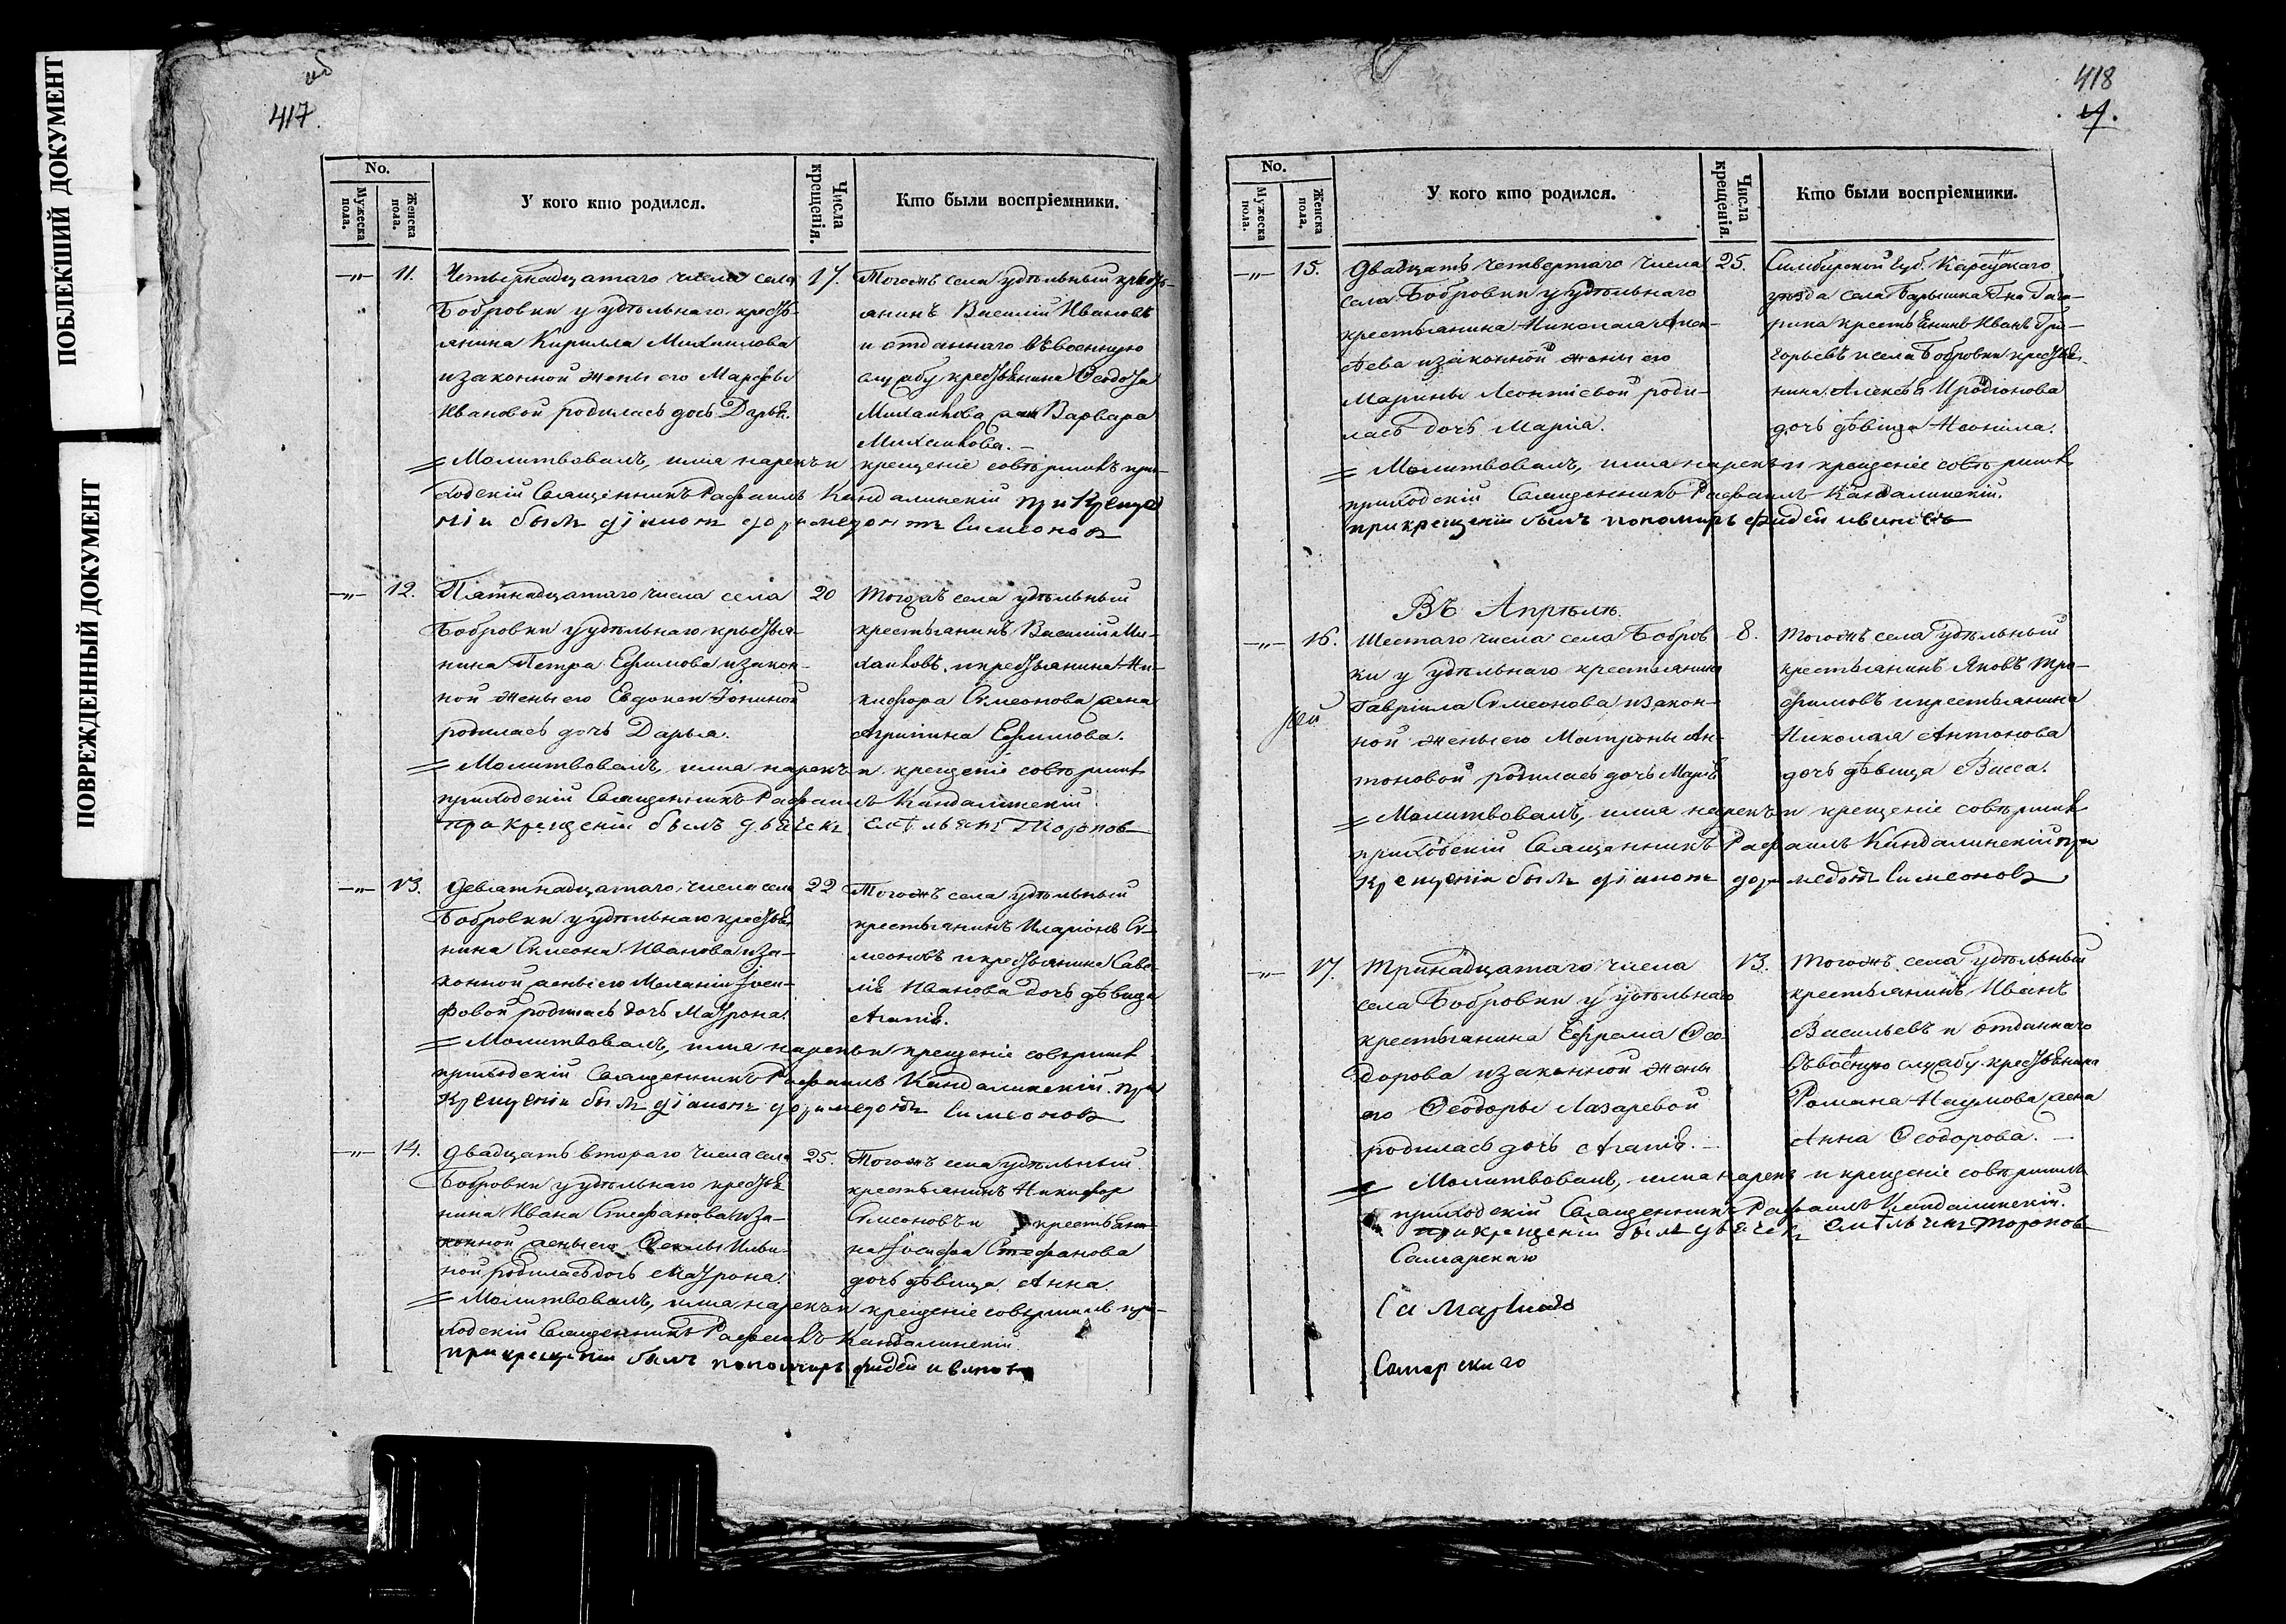 ПОБЛЕКШИЙ ДОКУМЕНТ
ПОВРЕЖДЕННЫЙ ДОКУМЕНТ
417.
No.
Мужеска пола.
Женска пола.
У кого кто родился.
Числа крещенія.
Кто были воспріемники.
11.
Четырнадцатаго числа села
Бобровки у удѣльнаго кресть-
янина Кирилла Михаилова
и законной жены его Марѳы
Ивановой родилась дочь Дарья.
17.
Тогожъ села удѣльный кресть-
янинъ Василій Ивановъ
и отданнаго въ военную
службу крестьянина Ѳедота
Михаилова жена Варвара
Михаилова.
= Молитвовалъ, имя нарекъ и крещеніе совершилъ при-
ходскій Священникъ Рафаилъ Кандалинскій при креще
ніи былъ діаконъ доримедонтъ Симеоновъ
12.
Пятнадцатаго числа села
Бобровки у удѣльнаго крестья-
нина Петра Ефимова и закон-
ной жены его Евдокеи Іониной
родилась дочь Дарья.
20
Тогожъ села удѣльный
крестьянинъ Василій Ми-
хаиловъ и крестьянина Ни-
кифора Симеонова жена
Агрипина Ефимова.
= Молитвовалъ, имя нарекъ и крещеніе совершилъ
приходскій Священникъ Рафаилъ Кандалинскій
при крещеніи былъ дьячекъ Емѣльянъ Торопов
13.
Девятнадцатаго числа села
Бобровки у удѣльнаго крестья-
нина Симеона Иванова и за-
конной жены его Меланіи Іоси-
фовой родилась дочь Матрона.
22
Тогожъ села удѣльный
крестьянинъ Иларіонъ Си-
меоновъ и крестьянина Саве-
лія Иванова дочь дѣвица
Агапія.
= Молитвовалъ, имя нарекъ и крещеніе совершилъ
приходскій Священникъ Рафаилъ Кандалинскій. при
крещеніи былъ діаконъ доримедонтъ Симеоновъ
14.
Двадцать втораго числа села
Бобровки у удѣльнаго крестья
нина Ивана Стефанова и за-
конной жены его Ѳеклы Ильи-
ной родилась дочь Матрона.
25.
Тогожъ села удѣльный
крестьянинъ Никифор
Симеоновъ и крестьяни-
на Іосифа Стефанова
дочь дѣвица Анна.
= Молитвовалъ, имя нарекъ и крещеніе совершилъ при-
ходскій Священникъ Рафаилъ Кандалинскій
при крещеніи былъ пономарь фадей
418
7.
No.
Мужеска пола.
Женска пола.
У кого кто родился.
Числа крещенія.
Кто были воспріемники.
15.
Двадцать четвертаго числа
села Бобровки у удѣльнаго
крестьянина Николая Алек-
сѣева и законной жены его
Марины Леонтіевой роди-
лась дочь Марія.
25.
Симбирской Губ. Карсунскаго
уѣзда села Барышка Г-на Гага-
рина крестьянинъ Иванъ Гри-
горьевъ и села Бобровки крестья-
нина Алексѣя Иродіонова
дочь дѣвица Неонила.
= Молитвовалъ, имя нарекъ и крещеніе совершилъ
приходскій Священникъ Рафаилъ Кандалинскій.
при крещеніи былъ пономарь фадей
Въ Апрѣлѣ.
16.
Шестаго числа села Бобров
ки у удѣльнаго крестьянина
Гавріила Симеонова и закон-
ной жены его Матроны Ан-
тоновой родилась дочь Марія
8.
Тогожъ села удѣльный
крестьянинъ Яковъ Тро-
фимовъ и крестьянина
Николая Антонова
дочь дѣвица Васса.
= Молитвовалъ, имя нарекъ и крещеніе совершилъ
приходскій Священникъ Рафаилъ Кандалинскій при
крещеніи былъ діаконъ доримедонтъ Симеоновъ
17.
Тринадцатаго числа
села Бобровки у удѣльнаго
крестьянина Ефрема Ѳео-
дорова и законной жены
его Ѳеодоры Лазаревой
родилась дочь Агапія.
13.
Тогожъ села удѣльный
крестьянинъ Иванъ
Васильевъ и отданнаго
въ военную службу крестьянина
Романа Наумова жена
Анна Ѳеодорова.
= Молитвовалъ, имя нарекъ и крещеніе совершилъ
приходскій Священникъ Рафаилъ Кандалинскій.
при крещеніи былъ дьячекъ Емѣльянъ Торопов
Самарскаго
Самарскаго
Самарскаго